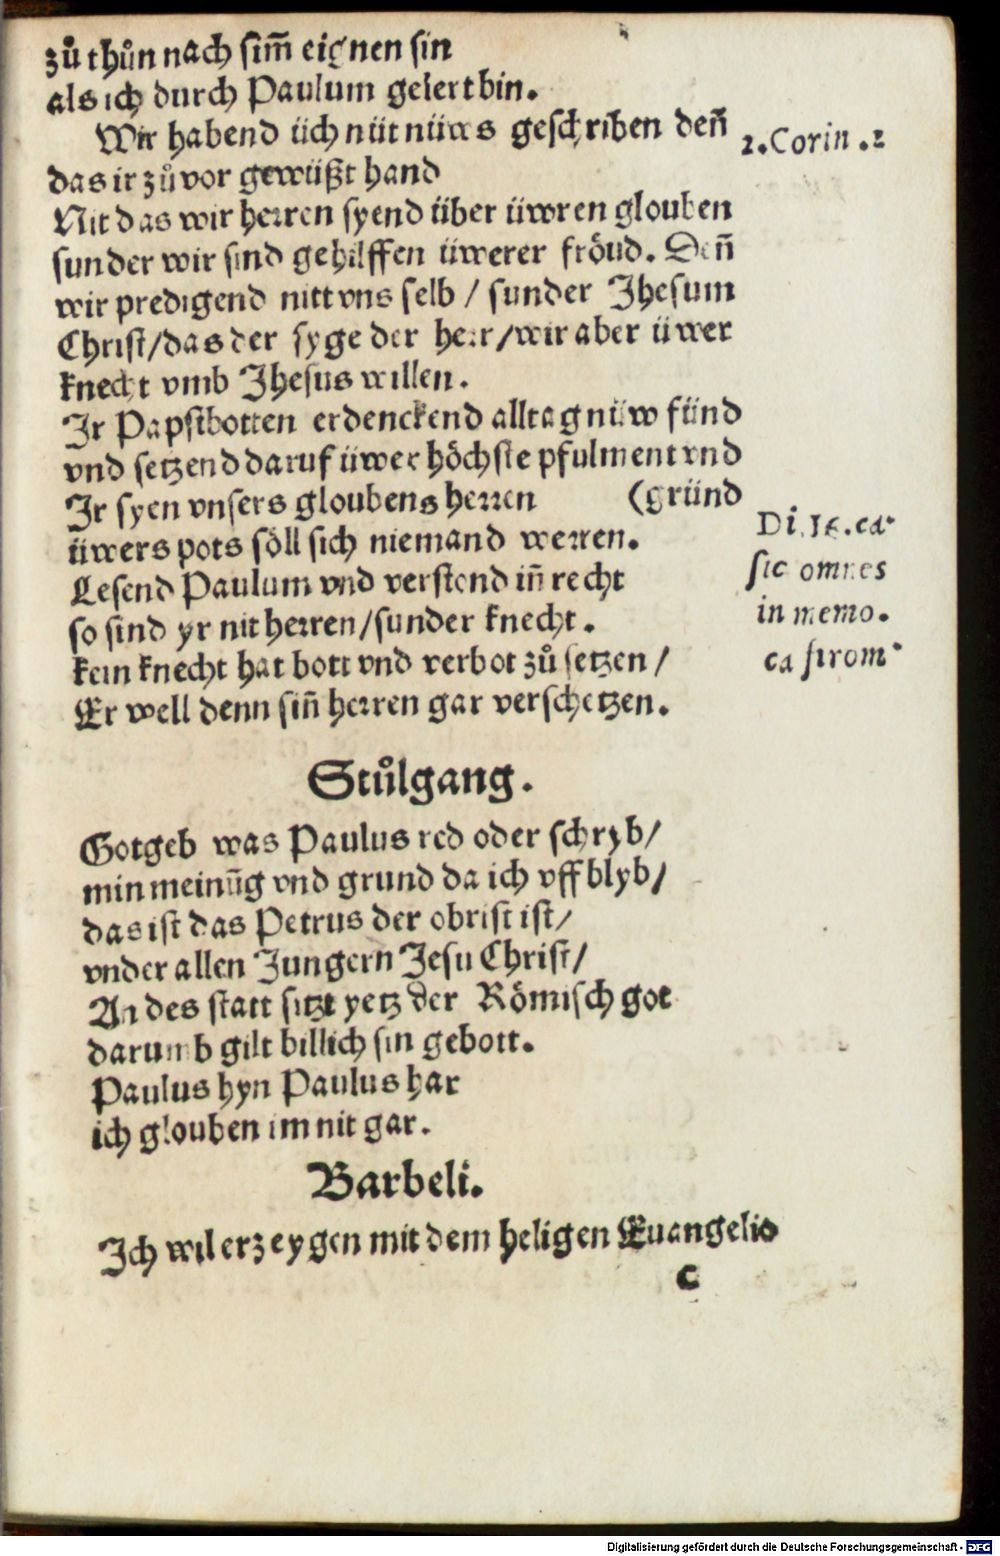 zů thůn nach sim̄ eignen sin
als ich durch Paulum gelert bin.
Wir habend üch nüt nüws geschriben den̄
2. Corin. 2
das ir zů vor gewüßt hand
Nit das wir herren syend über üwren glouben
sunder wir sind gehilffen üwerer fröud. Den̄
wir predigend nitt vns selb / sunder Jhesum
Christ/das der syge der herr/wir aber üwer
knecht vmb Jhesus willen.
Jr Papstbotten erdenckend alltag nüw fünd
vnd setzend daruf üwer höchste pfulment vnd
Jr syen vnsers gloubens herren (gründ
üwers pots söll sich niemand werren.
Di. 19. ca.
sic omnes
in memo.
ca si rom.
Lesend Paulum vnd verstond in̄ recht
so sind yr nit herren/sunder knecht.
kein knecht hat bott vnd verbot zů setzen/
Er well denn sin̄ herren gar verschetzen.
Stůlgang.
Gotgeb was Paulus red oder schryb/
min meinūg vnd grund da ich vff blyb/
das ist das Petrus der obrist ist/
vnder allen Jungern Jesu Christ/
An des statt sitzt yetz der Römisch got
darumb gilt billich sin gebott.
Paulus hyn Paulus har
ich glouben im nit gar.
Barbeli.
Jch wil erzeygen mit dem heligen Euangelio
C
Digitalisierung gefördert durch die Deutsche Forschungsgemeinschaft - DFG